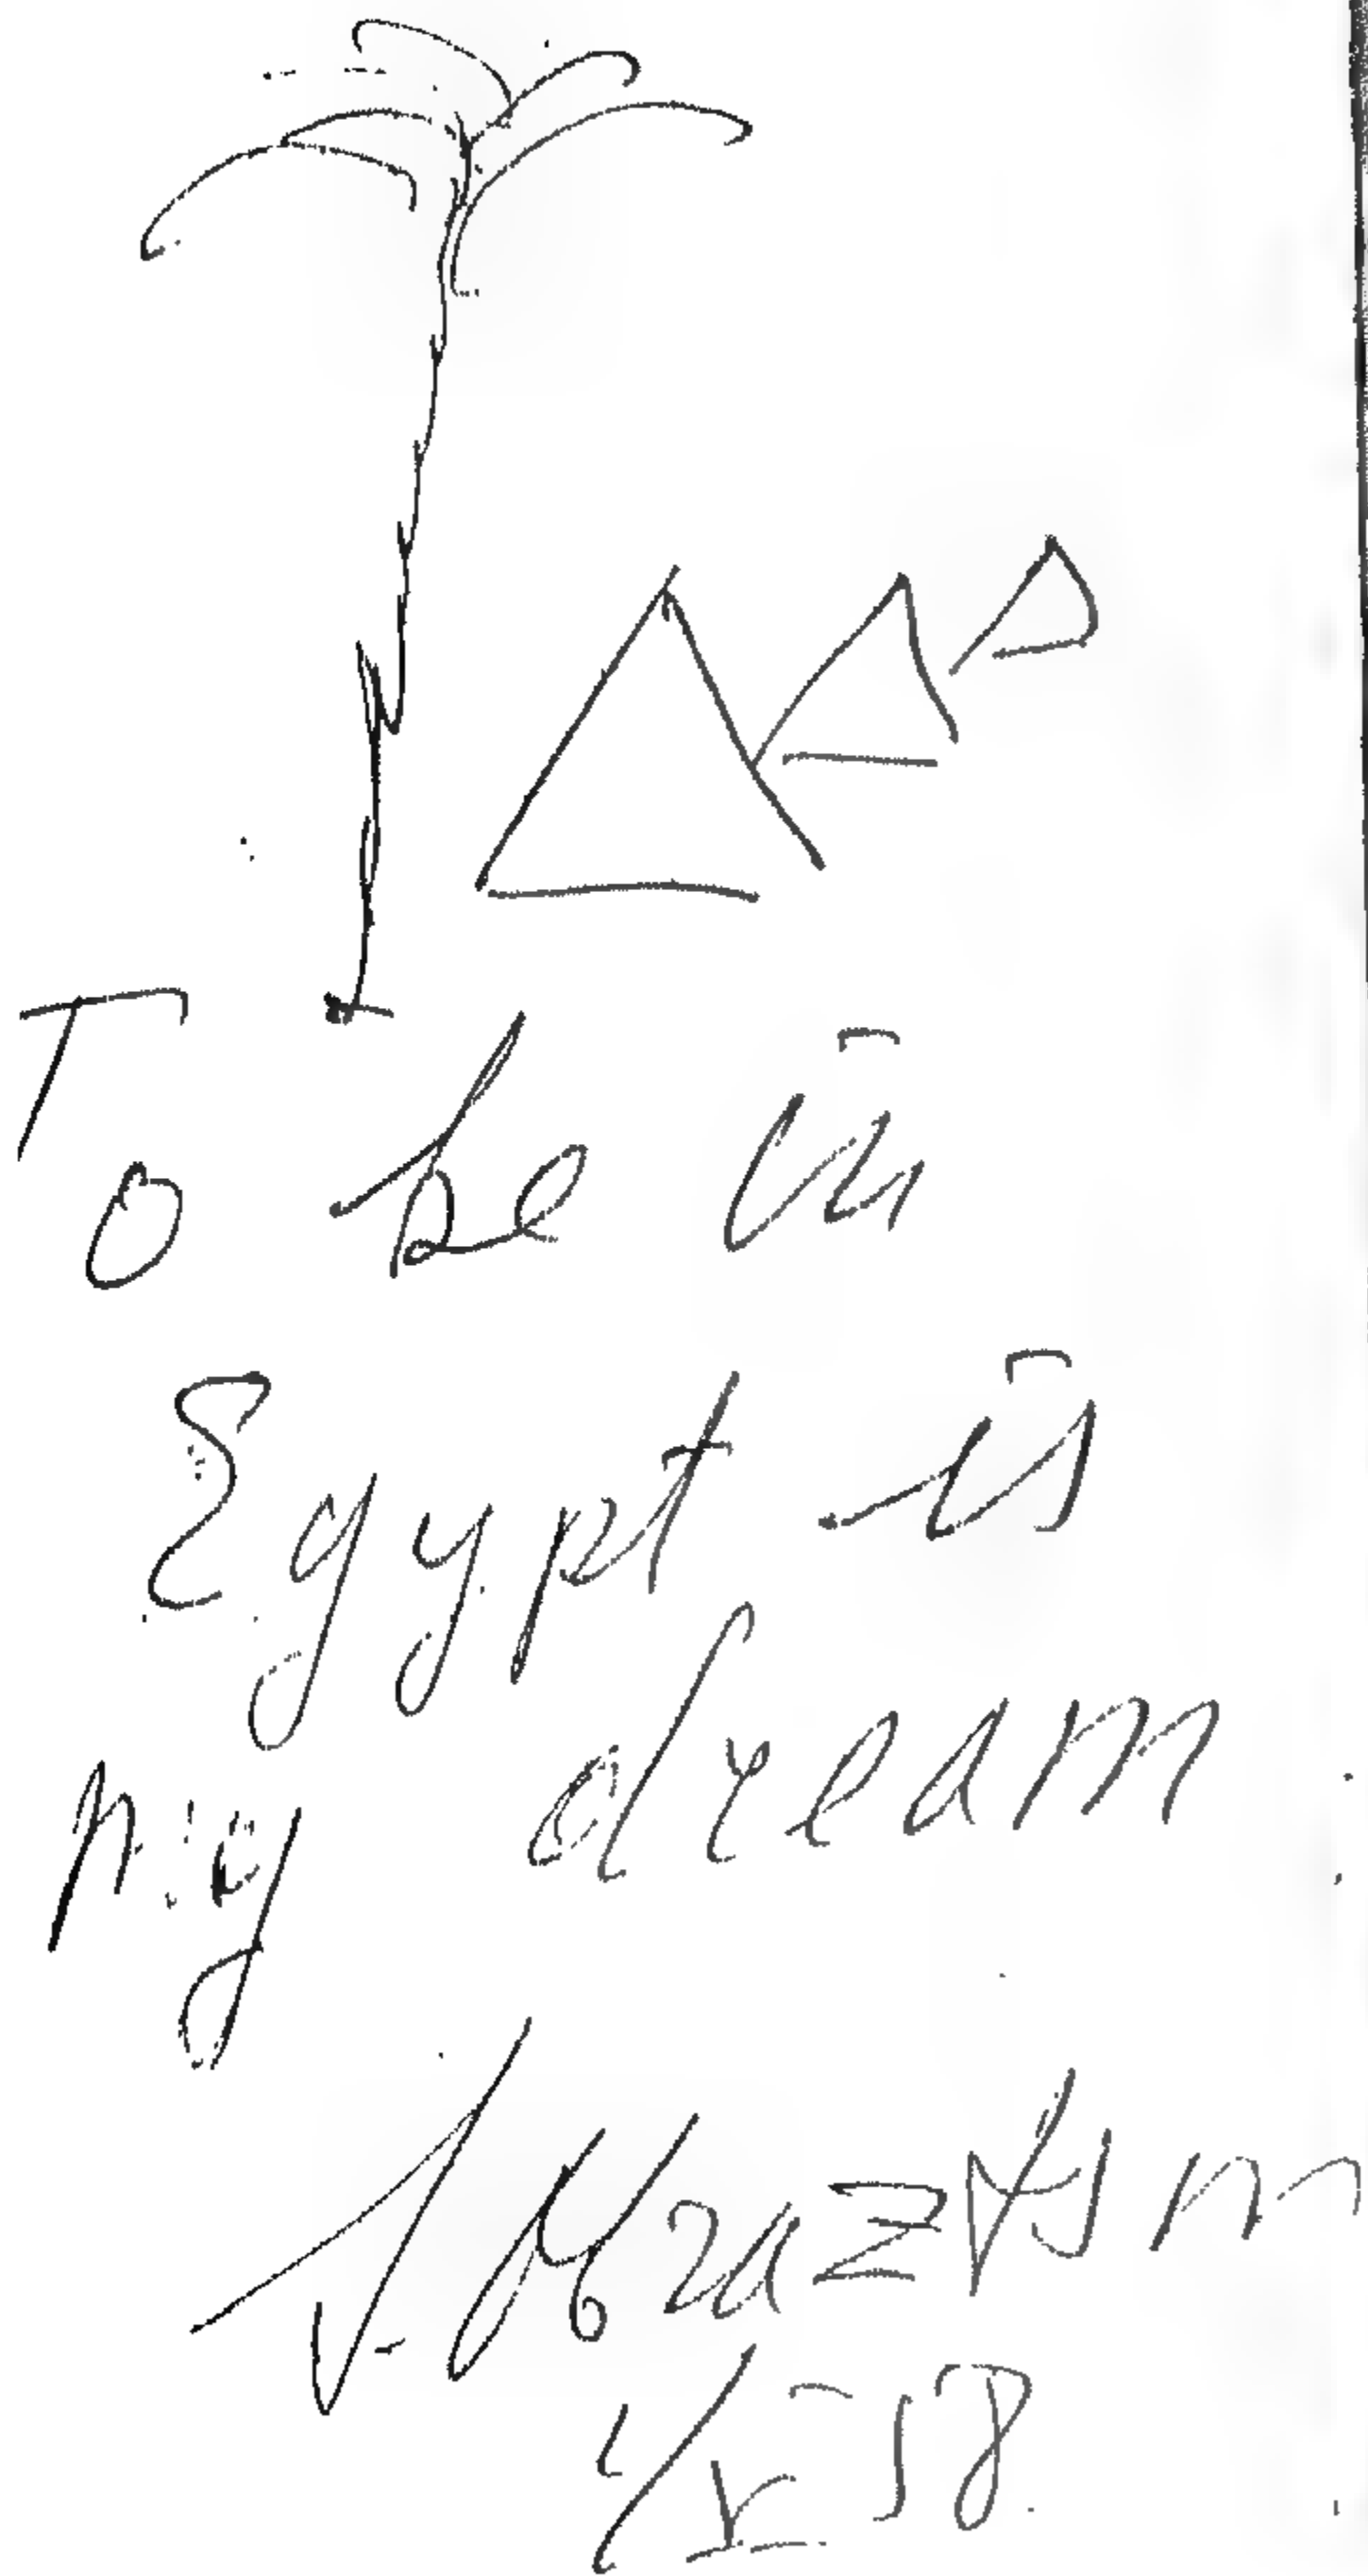 To be in
Egypt is
my dream
1/V 58.